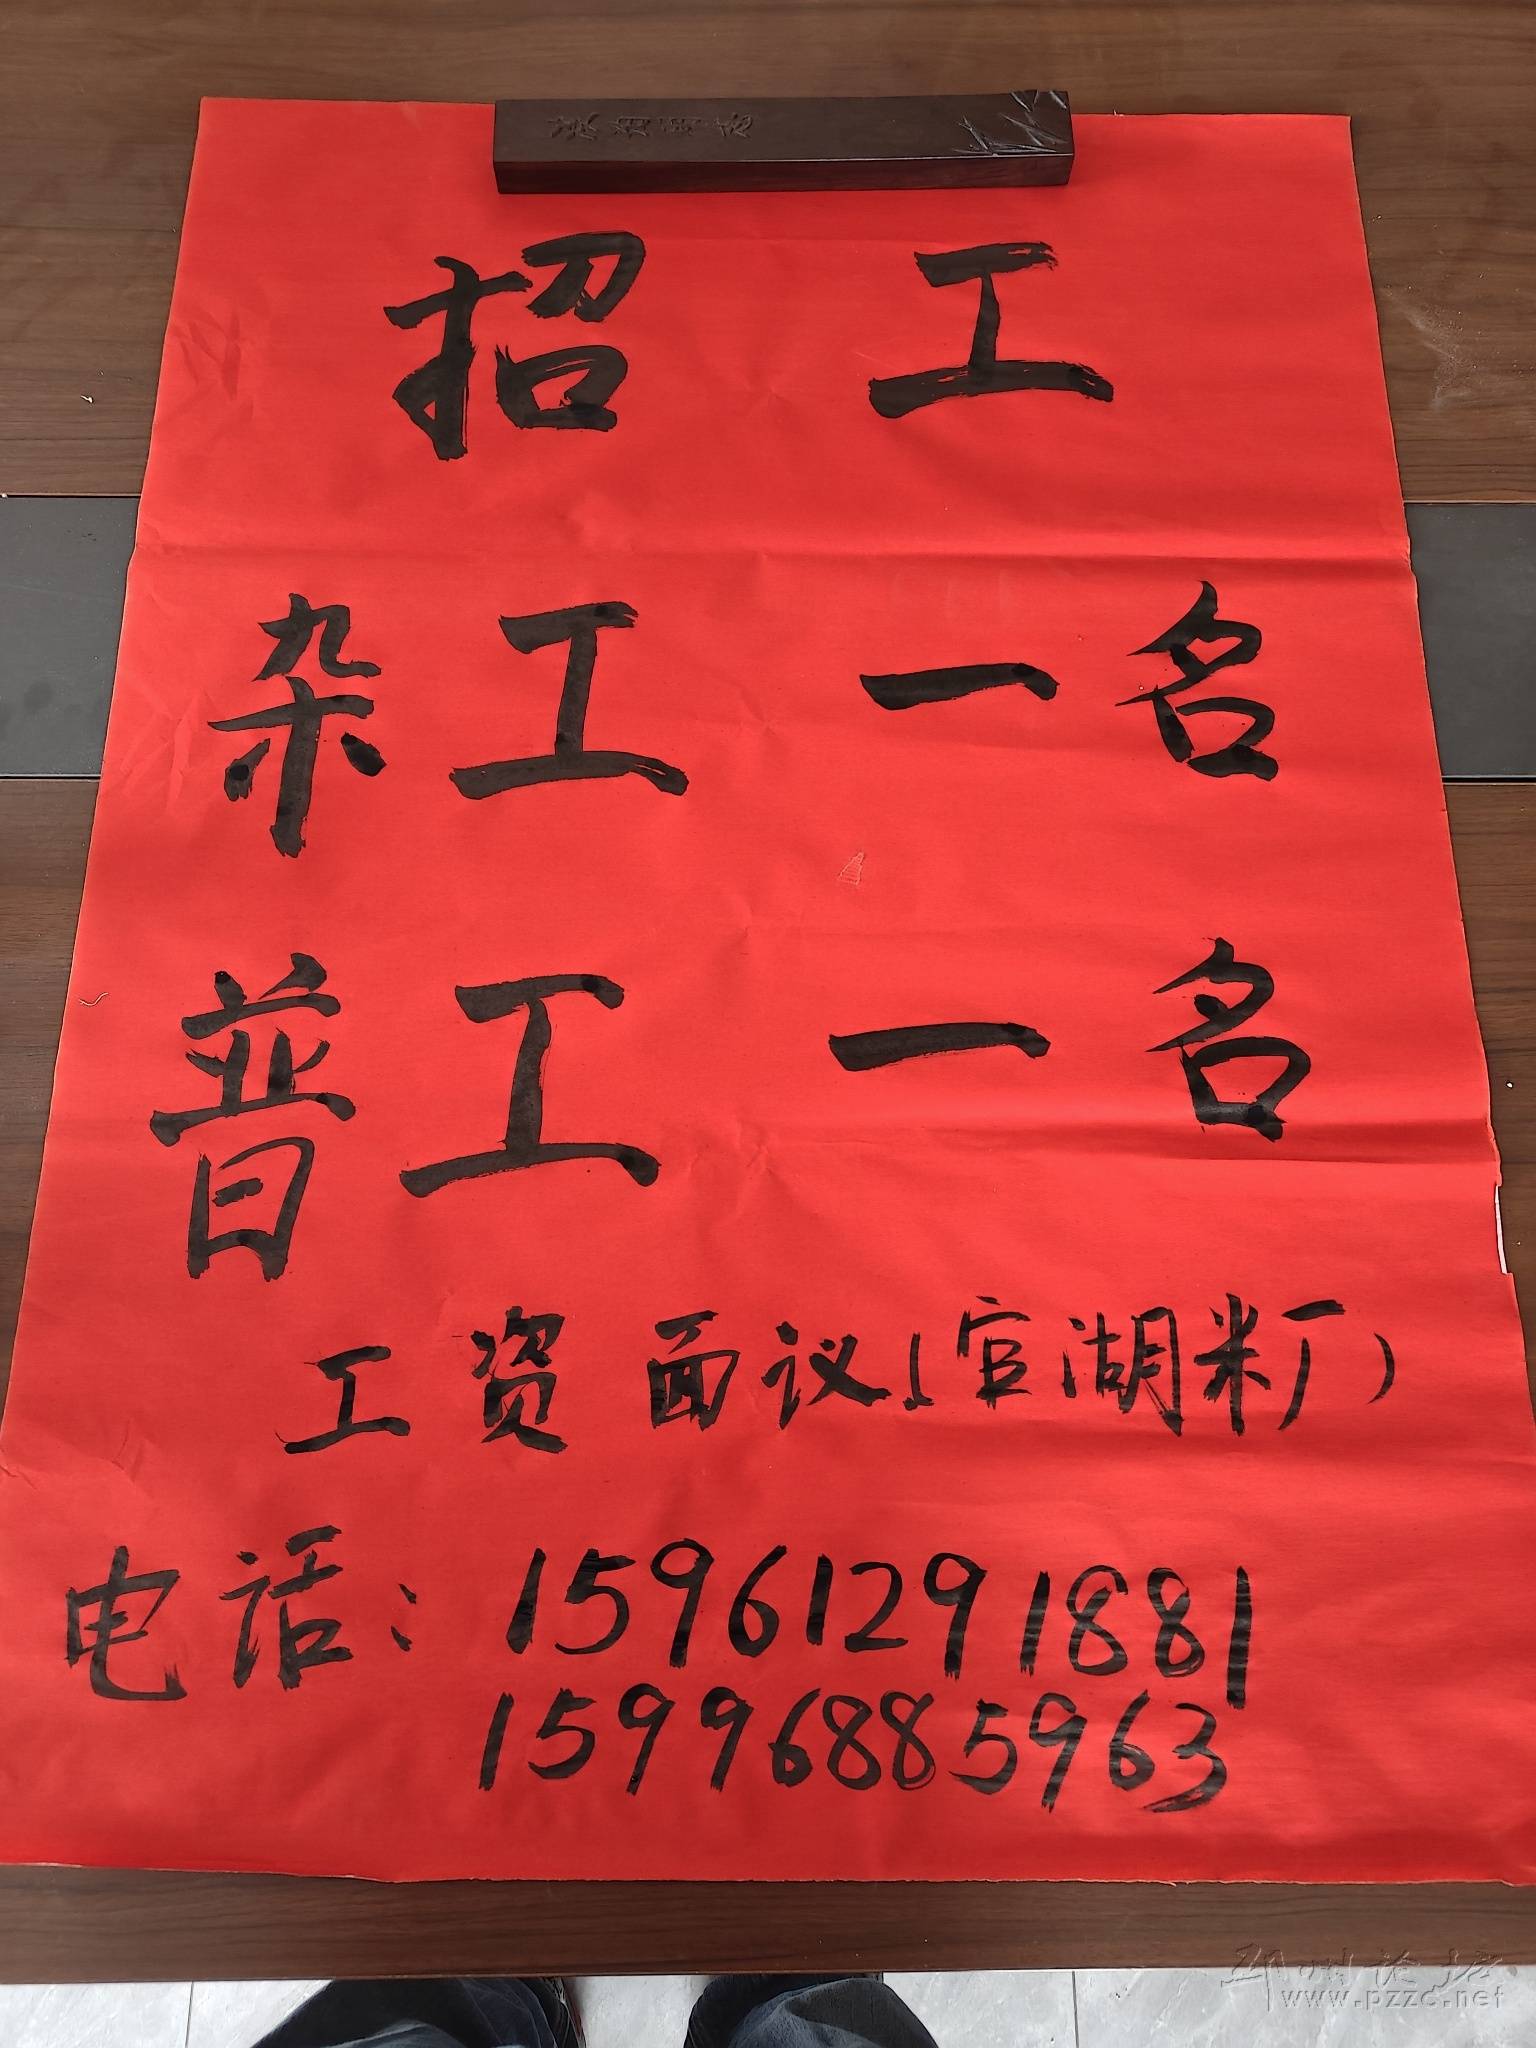 招工
杂工 一名
普工 一名
工资面议(官湖米厂)
电话：15961291881
15996885963
邳州论坛
www.pzzc.net